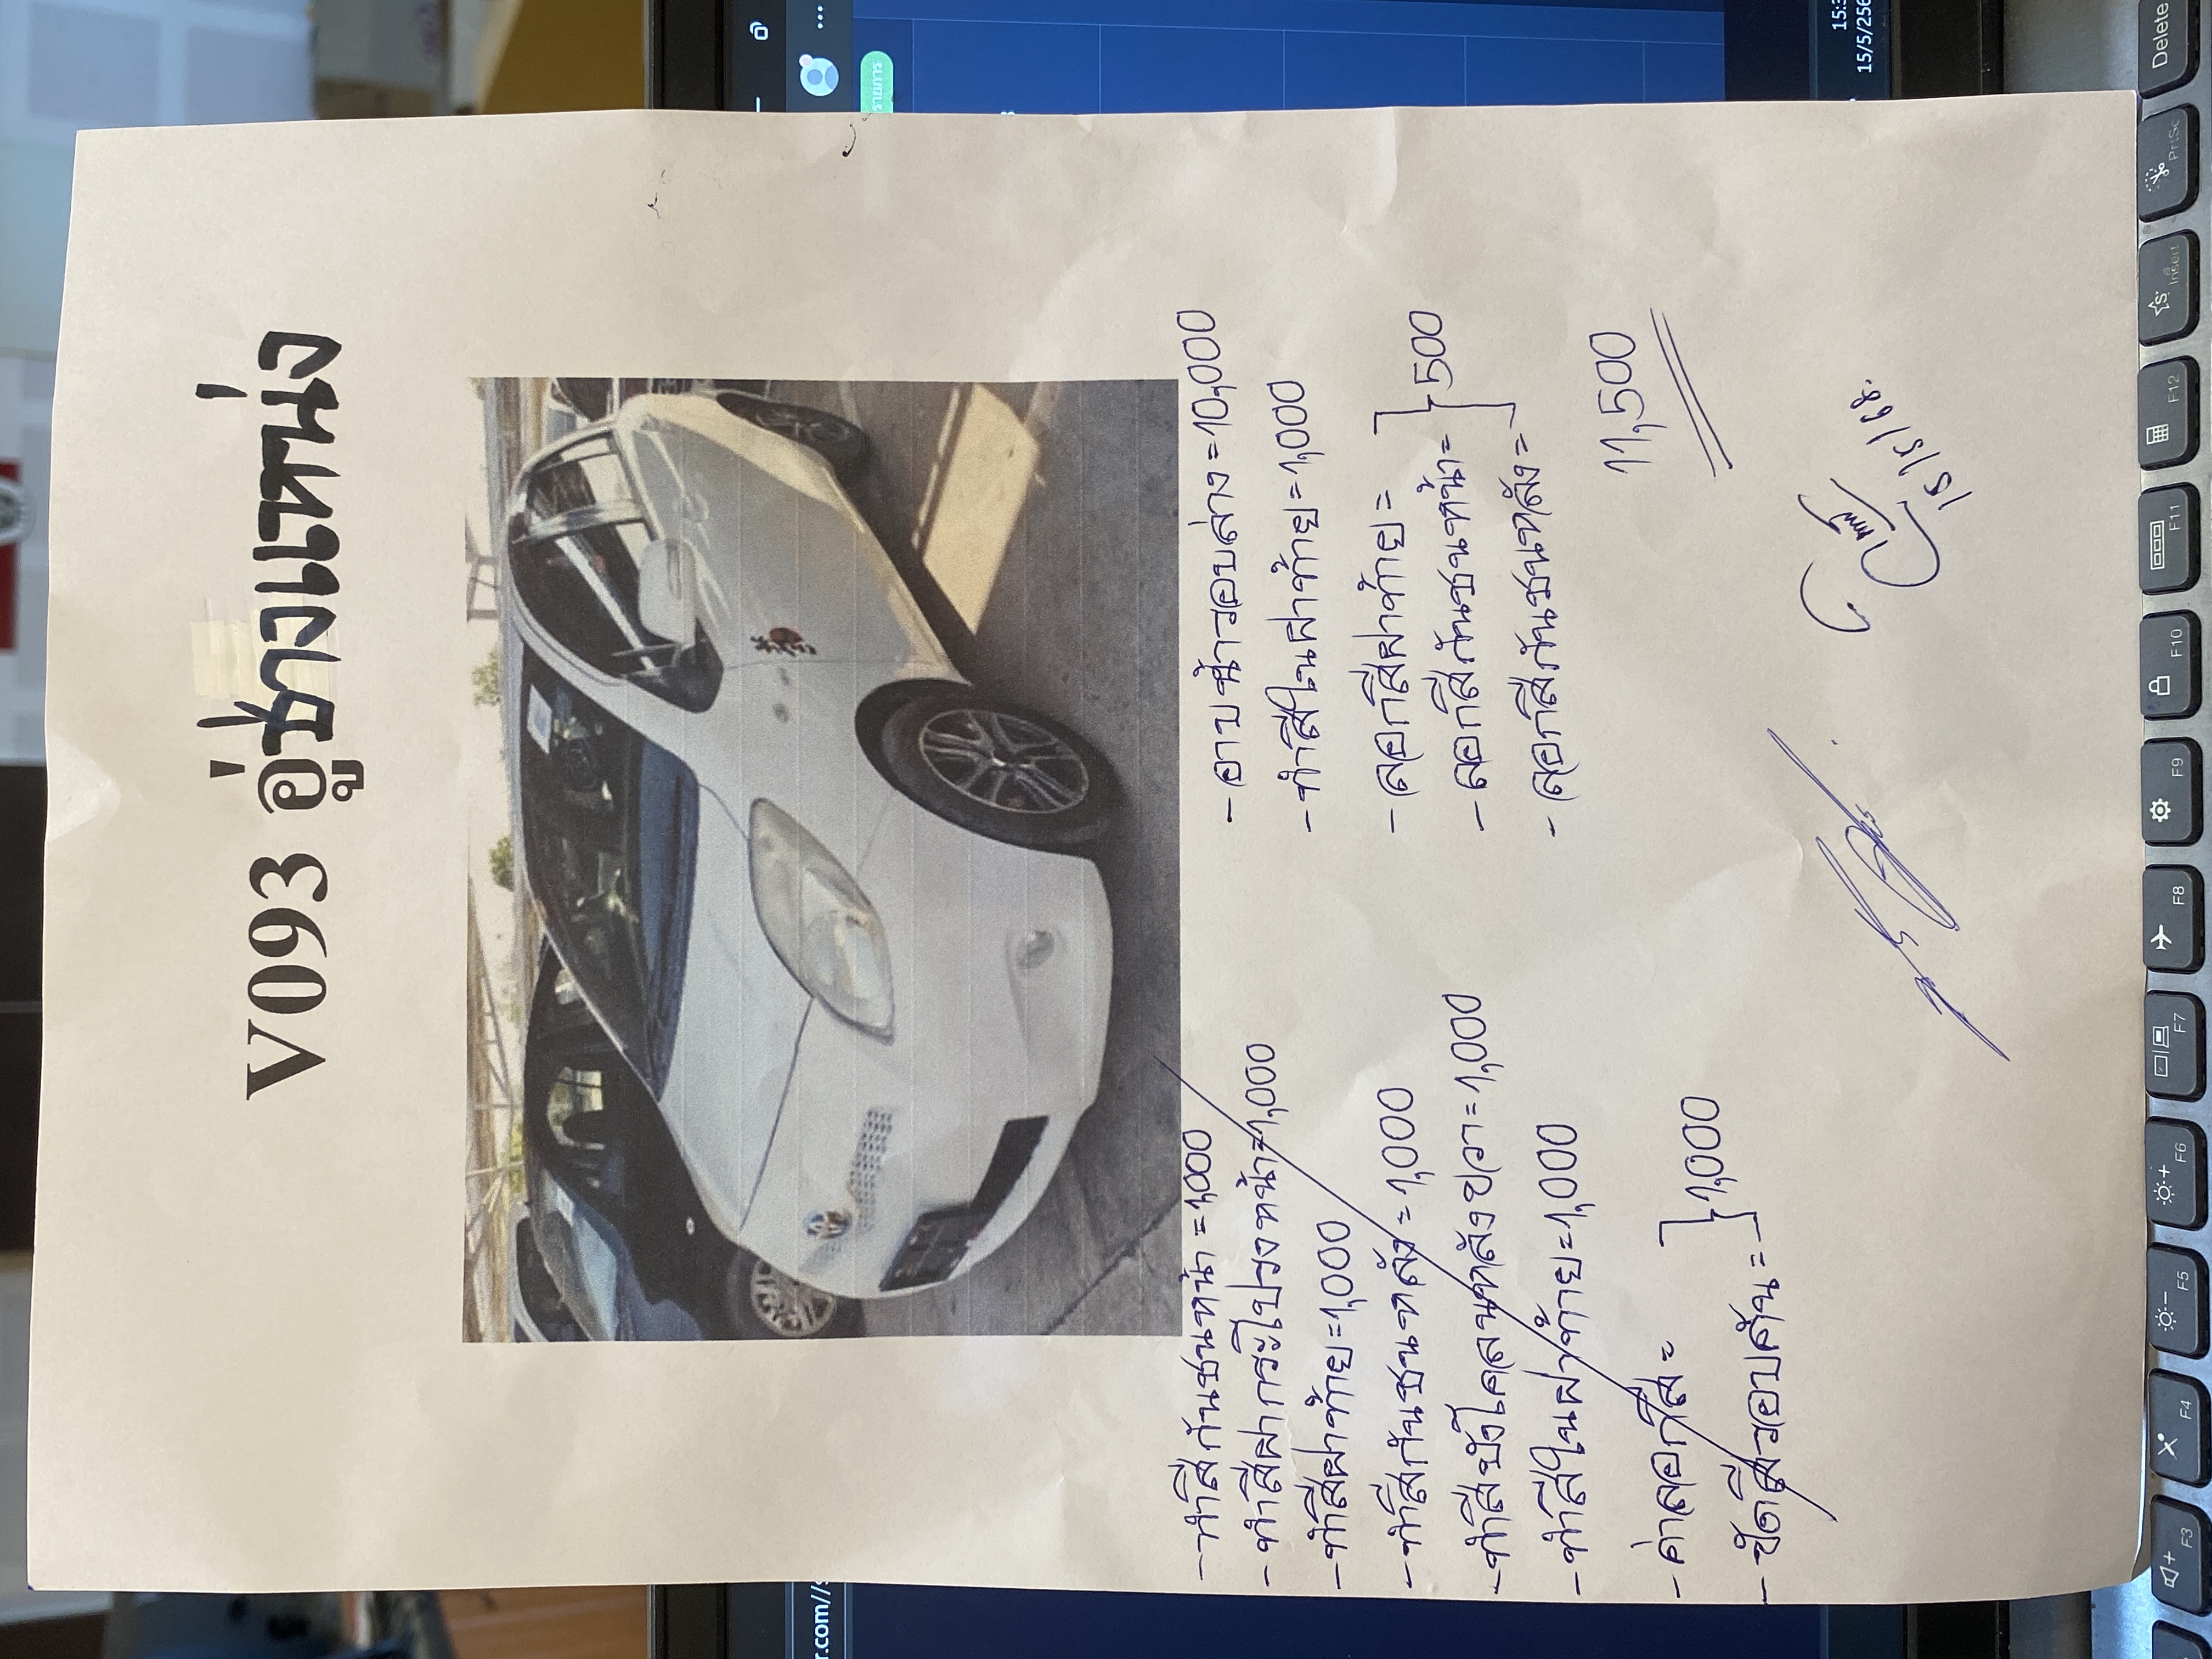 V093 อู่ช่างแหน่ง
- ทำสีกันชนหน้า = 1,000
- ทำสีฝากระโปรงหน้า = 1,000
- ทำสีฝาท้าย = 1,000
- ทำสีกันชนหลัง = 1,000
- ทำสีบังโคลนหลังขวา = 1,000
- ทำสีในฝาท้าย = 1,000
- ค่าลอกสี =
1,000
- ขัดสีรอบคัน =
- อาบน้ำรอบล่าง = 10,000
- ทำสีในฝาท้าย = 1,000
- ลอกสีฝาท้าย =
- ลอกสีกันชนหน้า =
500
- ลอกสีกันชนหลัง =
11,500
15/5/68
รายการ
15/5/256
Delete
PrtSc
Insert
F12
F11
F10
F9
F8
F7
F6
F5
F4
F3